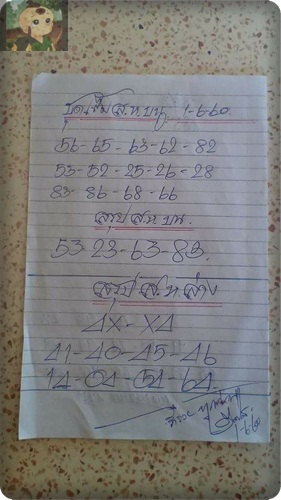 ชุดเต็ม ส.ห.บน. 1-6-60.
56-65-63-62-82
53-52-25-26-28
83-86-68-66
สรุป ส.ห.บน.
53-23-63-83.
สรุป ส.ห.ล่าง
4X-X4
41-40-45-46
14-04-54-64.